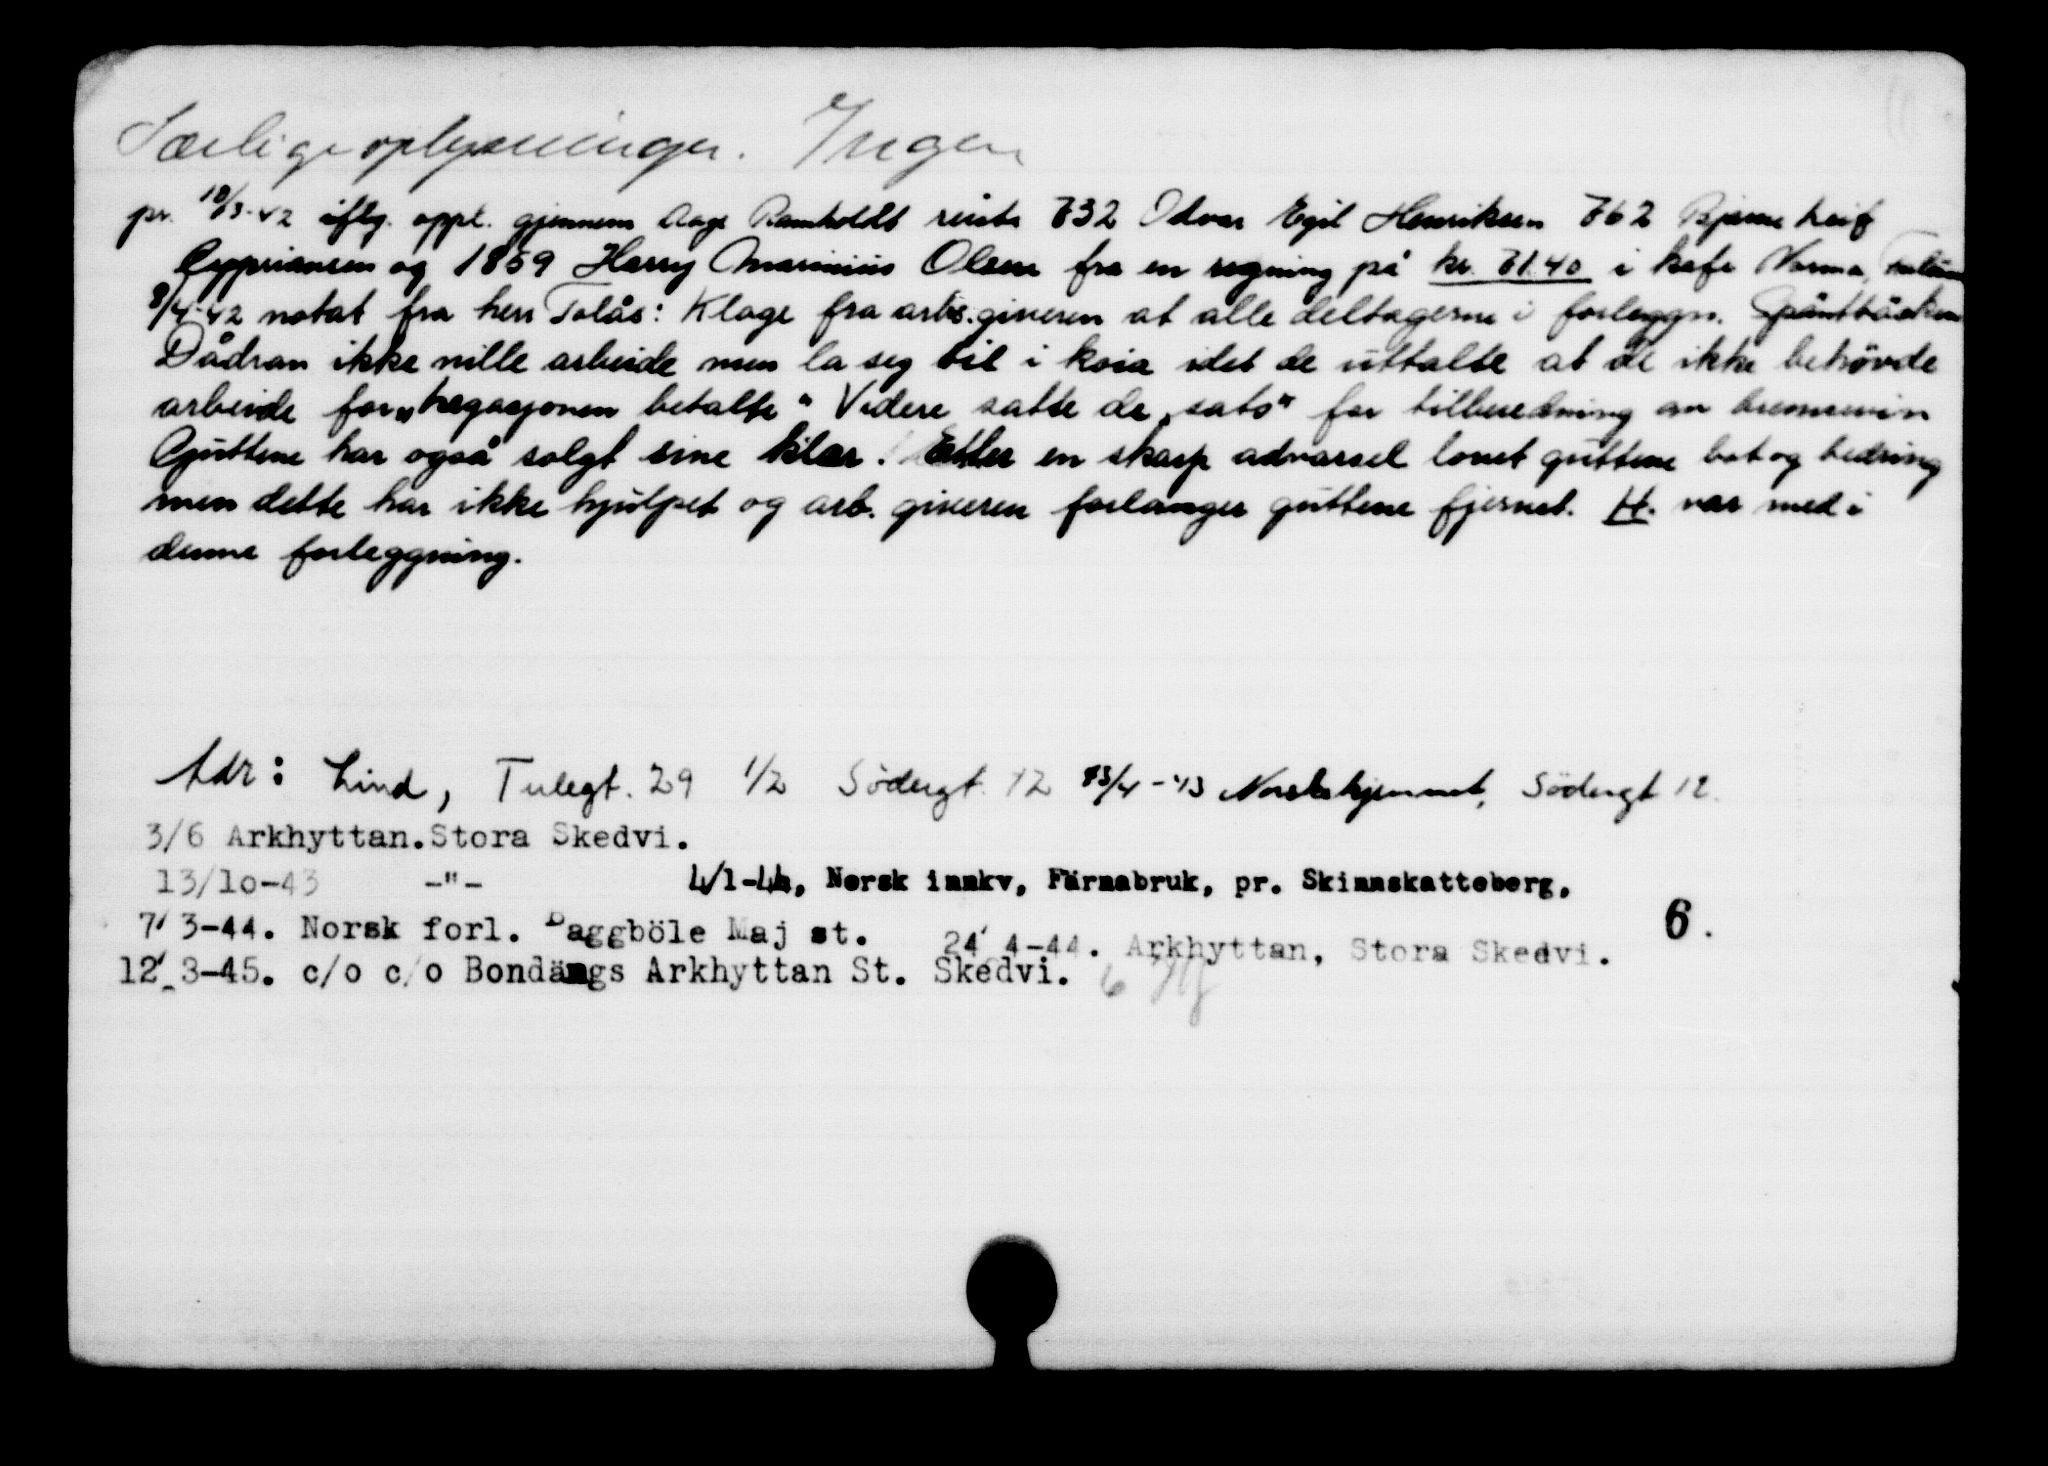 Særlige oplysninger. Ingen
pr. 18/3-42 iflg. oppl. gjennem Aage Ramholdt reiste 732 Odvar Egil Henriksen 762 Bjarne Leif
Cypriansen og 1859 Harry Marinius Olsen fra en regning på kr. 71.40 i kafe Norma, Falun
8/4-42 notat fra herr Tolås: Klage fra arb.giveren at alle deltagerne i forleggn. Späntbäcken
Dådran ikke ville arbeide men la seg til i koia idet de uttalte at de ikke behövde
arbeide for „Legasjonen betalte" Videre satte de „sats" for tilberedning av brennevin
Guttene har også solgt sine klær. Etter en skarp advarsel lovet guttene bot og bedring
men dette har ikke hjulpet og arb. giveren forlanger guttene fjernet. H. var med i
denne forleggning.
Adr: Lind, Tulegt. 29 1/2 Södergt. 12 13/4-43 Norskehjemmet, Södergt 12.
3/6 Arkhyttan.Stora Skedvi.
13/10-43 -"- 4/1-44, Norsk innkv, Färnabruk, pr. Skinnskatteberg,
7/ 3-44. Norsk forl. Baggböle Maj st. 24/ 4-44. Arkhyttan, Stora Skedvi.
6.
12/ 3-45. c/o c/o Bondängs Arkhyttan St. Skedvi. 6